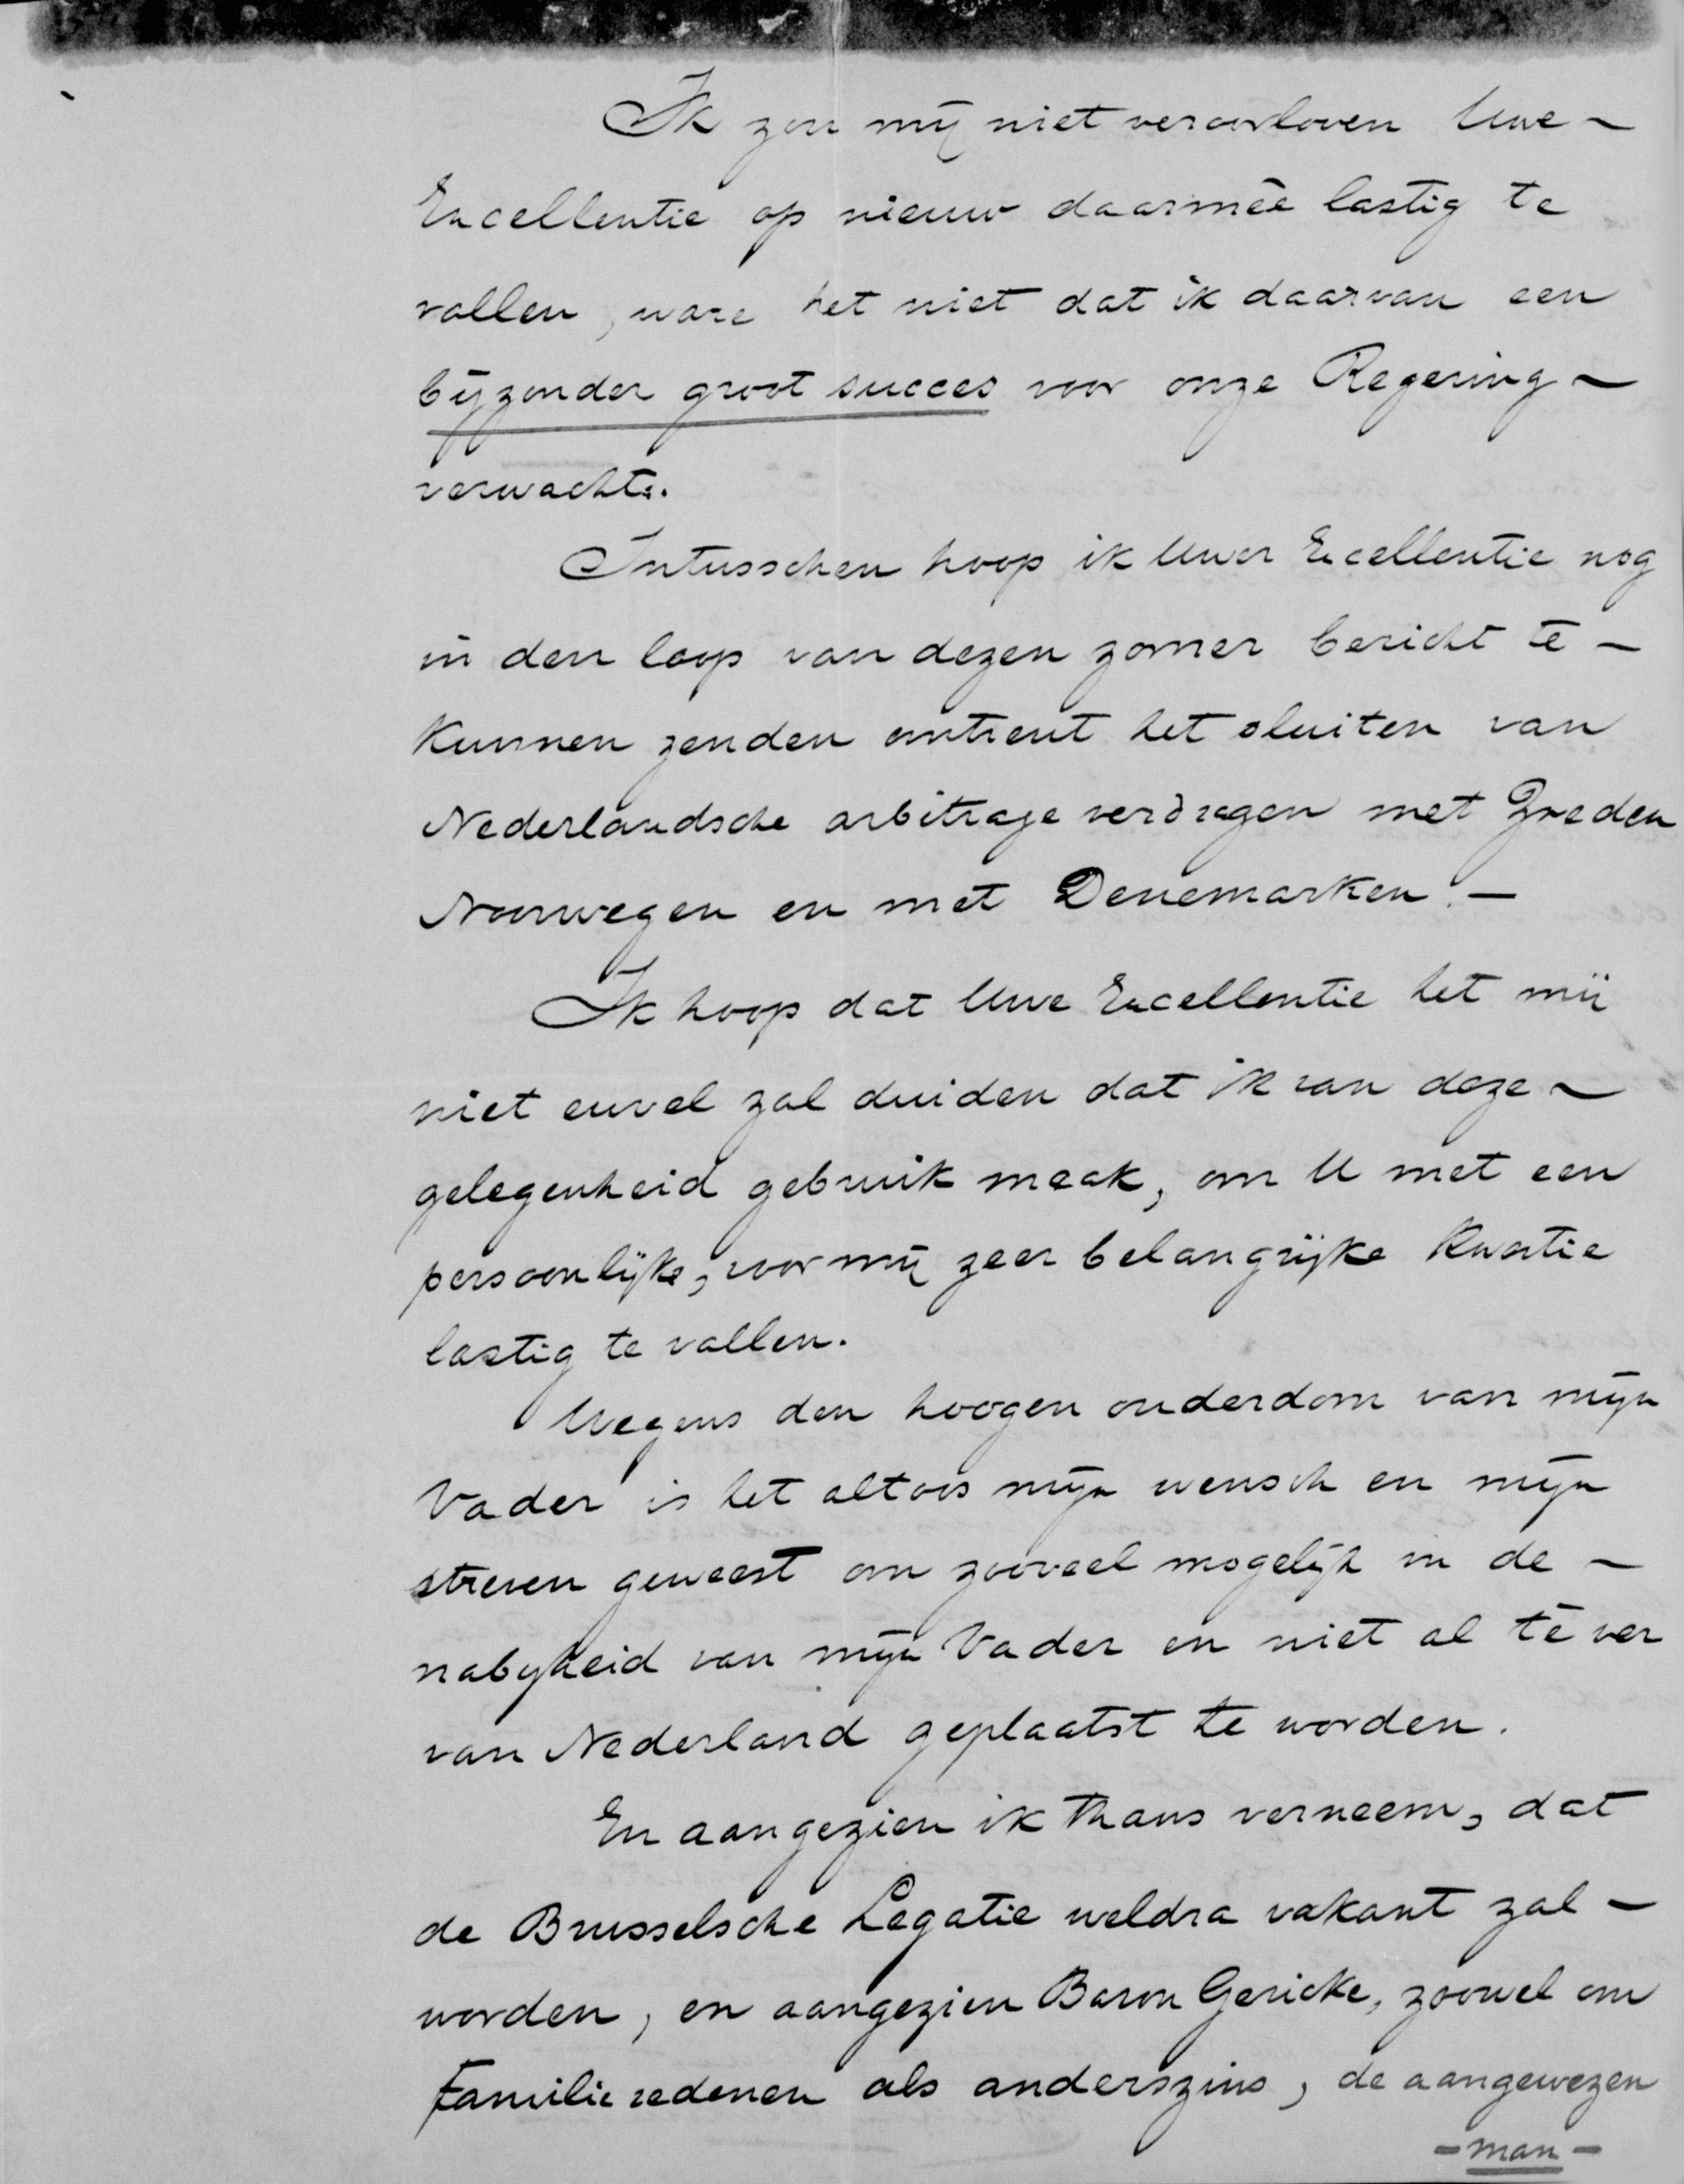 Ik zou mij niet veroorloven Uwe –
Excellentie op nieuw daarmêe lastig te
vallen, ware het niet dat ik daarvan een
bijzonder groot succes voor onze Regering –
verwachtte.
Intusschen hoop ik Uwer Excellentie nog
in den loop van dezen zomer bericht te –
kunnen zenden omtrent het sluiten van
Nederlandsche arbitrage verdragen met Zweden
Noorwegen en met Denemarken. –
Ik hoop dat Uwe Excellentie het mij
niet euvel zal duiden dat ik van deze –
gelegenheid gebruik maak, om U met een
persoonlijke, voor mij zeer belangrijke kwestie
lastig te vallen.
Wegens den hoogen ouderdom van mijn
Vader is het altoos mijn wensch en mijn
streven geweest om zooveel mogelijk in de –
nabijheid van mijn Vader en niet al te ver
van Nederland geplaatst te worden.
En aangezien ik thans verneem, dat
de Brusselsche Legatie weldra vakant zal –
worden, en aangezien Baron Gericke, zoowel om
Familie redenen als anderszins, de aangewezen
– man –